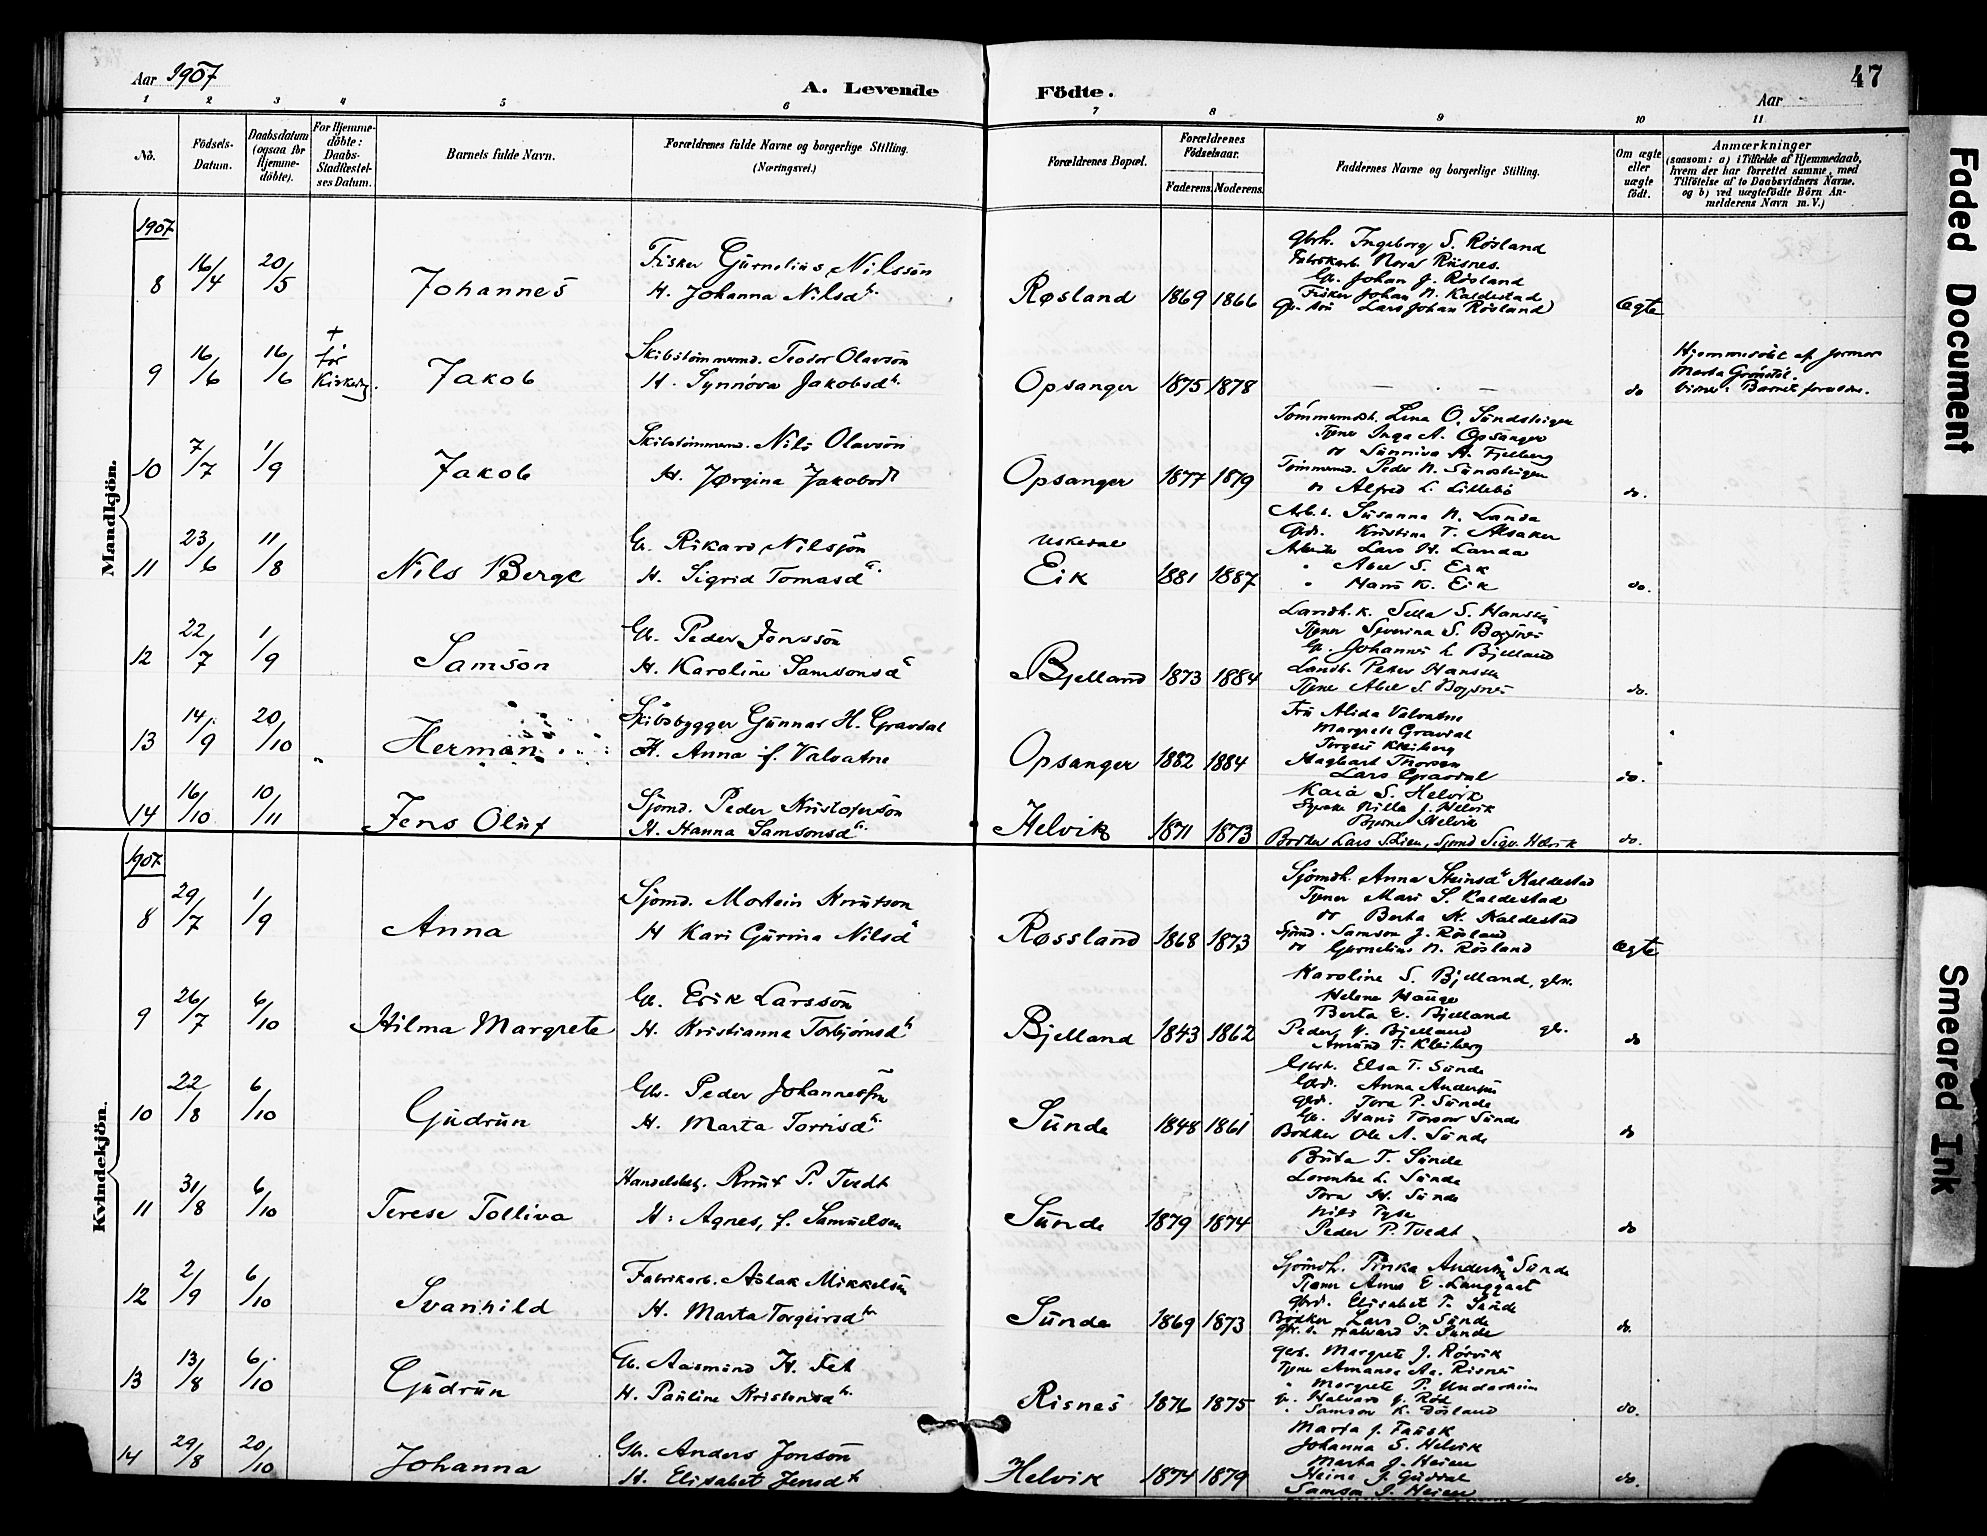 Aar 1907
A. Levende Födte.
47
Aar
1 2 3 4 5 6 7 8 9 10 11
No.
Födsels-Datum.
Daabsdatum (ogsaa for Hjemme-döbte).
For Hjemme-döbte: Daabs-Stadfæstel-ses Datum.
Barnets fulde Navn.
Forældrenes fulde Navne og borgerlige Stilling. (Næringsvei.)
Forældrenes Bopæl.
Forældrenes Födselsaar.
Faderens. Moderens.
Faddernes Navne og borgerlige Stilling.
Om ægte eller uægte födt.
Anmærkninger (saasom: a) i Tilfælde af Hjemmedaab, hvem der har forrettet samme, med Tilföielse af to Daabsvidners Navne, og b) ved uægtefödte Börn An-melderens Navn m. V.)
Mandkjön.
1907
8 16/4 20/5 Johannes
Fisker Gurnelius Nilssön
H. Johanna Nilsdtr.
Røsland 1869 1866
Ingeborg S. Røsland
Nora Risnes.
Gb. Johan J. Røsland
Fisker Johan N. Kaldestad
Lars Johan Røsland
Ægte
9 16/6 16/6 + før Kirkeg. Jakob
Skibstømmermd. Teodor Olavsön
H. Synnöva Jakobsdtr.
Opsanger 1875 1878 — — — do
Hjemmedöbt af jormor
Marta Grönstöl.
10 7/7 1/9 Jakob
Skibstømmermd. Nils Olavsön
H. Jørgina Jakobsdtr
Opsanger 1877 1879
Lina O. Sundsteigen
Tjener Inga A. Opsanger
do Sunniva A. Fjelberg
Tömmermd. Peder N. Sundsteigen
do Alfred L. Lillebö
do.
11 23/6 11/8 Nils Berge
Gb. Rikard Nilssön
H. Sigrid Tomasdtr.
Uskedal
Eik 1881 1887
Susanna N. Landa
Kristina T. Alsaker
Lars H. Landa
" Abel S. Eik
" Hans K. Eik
do.
12 22/7 1/9 Samson
Gb. Peder Jonssön
H. Karoline Samsonsdtr
Bjelland 1873 1884
Landh.k. Sella S. Hanssen
Tjener Severina S. Bogsnes
Gb. Johannes L. Bjelland
Landh. Peter Hanssen
Tjene Abel S. Bogsnes
do.
13 14/9 20/10 Herman
Skibsbygger Gunnar H. Gravdal
H. Anna f. Valvatne
Opsanger 1882 1884
Fru Alida Valvatne
Margrete Gravdal
Torgeir Kleiberg
Hagbart Thorsen
Lars Gravdal
do.
14 16/10 10/11 Jens Oluf
Sjömd. Peder Kristofersön
H. Hanna Samsonsdtr.
Helvik 1871 1873
Kaia S. Helvik
Nilla J. Helvik
Bjarne Helvik
Bödker Lars S. Lien, Sjömd Sigv. Helvik
do.
Kvindekjön.
1907
8 29/7 1/9 Anna
Sjömd. Mortein Knutson
H Kari Gurina Nilsdtr
Røssland 1868 1873
Sjömdh. Anna Steinsdtr Kaldestad
Tjener Mari S. Kaldestad
do Berta K. Kaldestad
Sjömd. Samson J. Røsland
do Gurnelius N. Røsland
ægte
9 26/7 6/10 Hilma Margrete
Gb. Erik Larssön
H. Kristianna Torbjørnsdtr
Bjelland 1843 1862
Karoline S. Bjelland, gbk.
Helene Hauge
Berta E. Bjelland
Peder J. Bjelland gb.
Amund T. Kleiberg
do
10 22/8 6/10 Gudrun
Gb. Peder Johannessön
H. Marta Torrisdtr.
Sunde 1848 1861
Gbrk. Elsa T. Sunde
Gbd. Anna Andersen
Gbd. Tora P. Sunde
Gb. Hans Torson Sunde
Bödker Ole A. Sunde
do
11 31/8 6/10 Terese Tolliva
Handelsbetj. Knut P. Tvedt
H. Agnes, f. Samuelsen
Sunde 1879 1874
Brita T. Sunde
Lorentze L. Sunde
Tora H. Sunde
Nils Tyse
Peder P. Tvedt
do
12 2/9 6/10 Svanhild
Fabrikarb. Aslak Mikkelsen
H. Marta Torgeirsdtr
Sunde 1869 1873
Sjömdh. Pinka Andersen Sunde
Tjener Anna E. Langgaat
Gbd. Elisabet T. Sunde
Bödker Lars O. Sunde
Halvard T. Sunde
do.
13 13/8 6/10 Gudrun
Gb. Aasmund H. Fet
H. Pauline Kristensdtr.
Risnes 1876 1875
Margrete J. Rörvik
Tjene Amanda Aa. Risnes
" Margrete P. Undarheim
Halvard J. Röe
" Samson K. Rösland
do.
14 29/8 20/10 Johanna
Gb. Anders Jonsön
H. Elisabet Jensdtr
Helvik 1874 1879
Marta J. Fausk
Johanna S. Helvik
Marta J. Heien
Heine J. Guddal
Samson J. Heien
do.
Faded Document
Smeared Ink